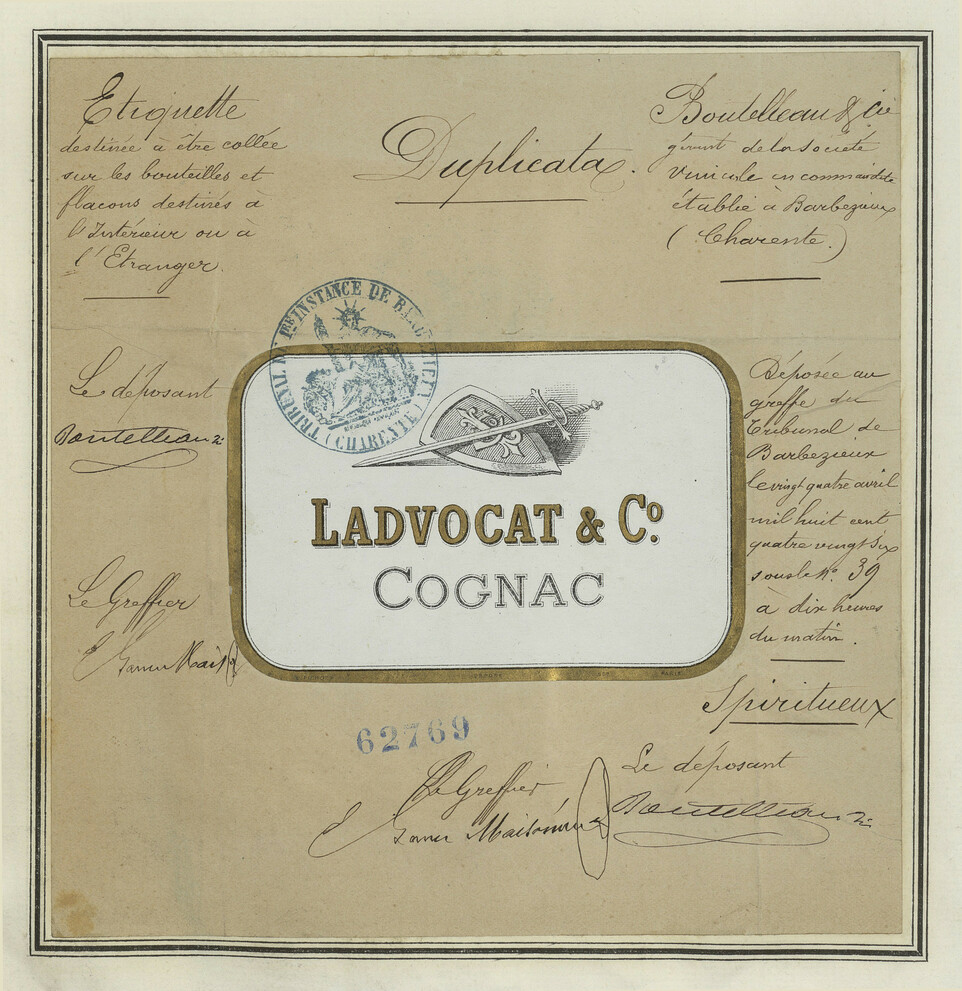 Etiquette
destinée à être collée
sur les bouteilles et
flacons destinés à
l'Intérieur ou à
l'Etranger.
Duplicata.
Boutelleau & Cie
gérant de la Société
vinicole en commandite
établie à Barbezieux
(Charente.)
TRIBUNAL DE 1ERE INSTANCE DE BARBEZIEUX
(CHARENTE)
Le déposant
Boutelleau
Le Greffier
LADVOCAT & Co.
COGNAC
Déposée au
greffe du
Tribunal de
Barbezieux
le vingt quatre avril
mil huit cent
quatre vingt six
sous le No. 39
à dix heures
du matin.
Spiritueux
62769
Le Greffier
Le déposant
Boutelleau